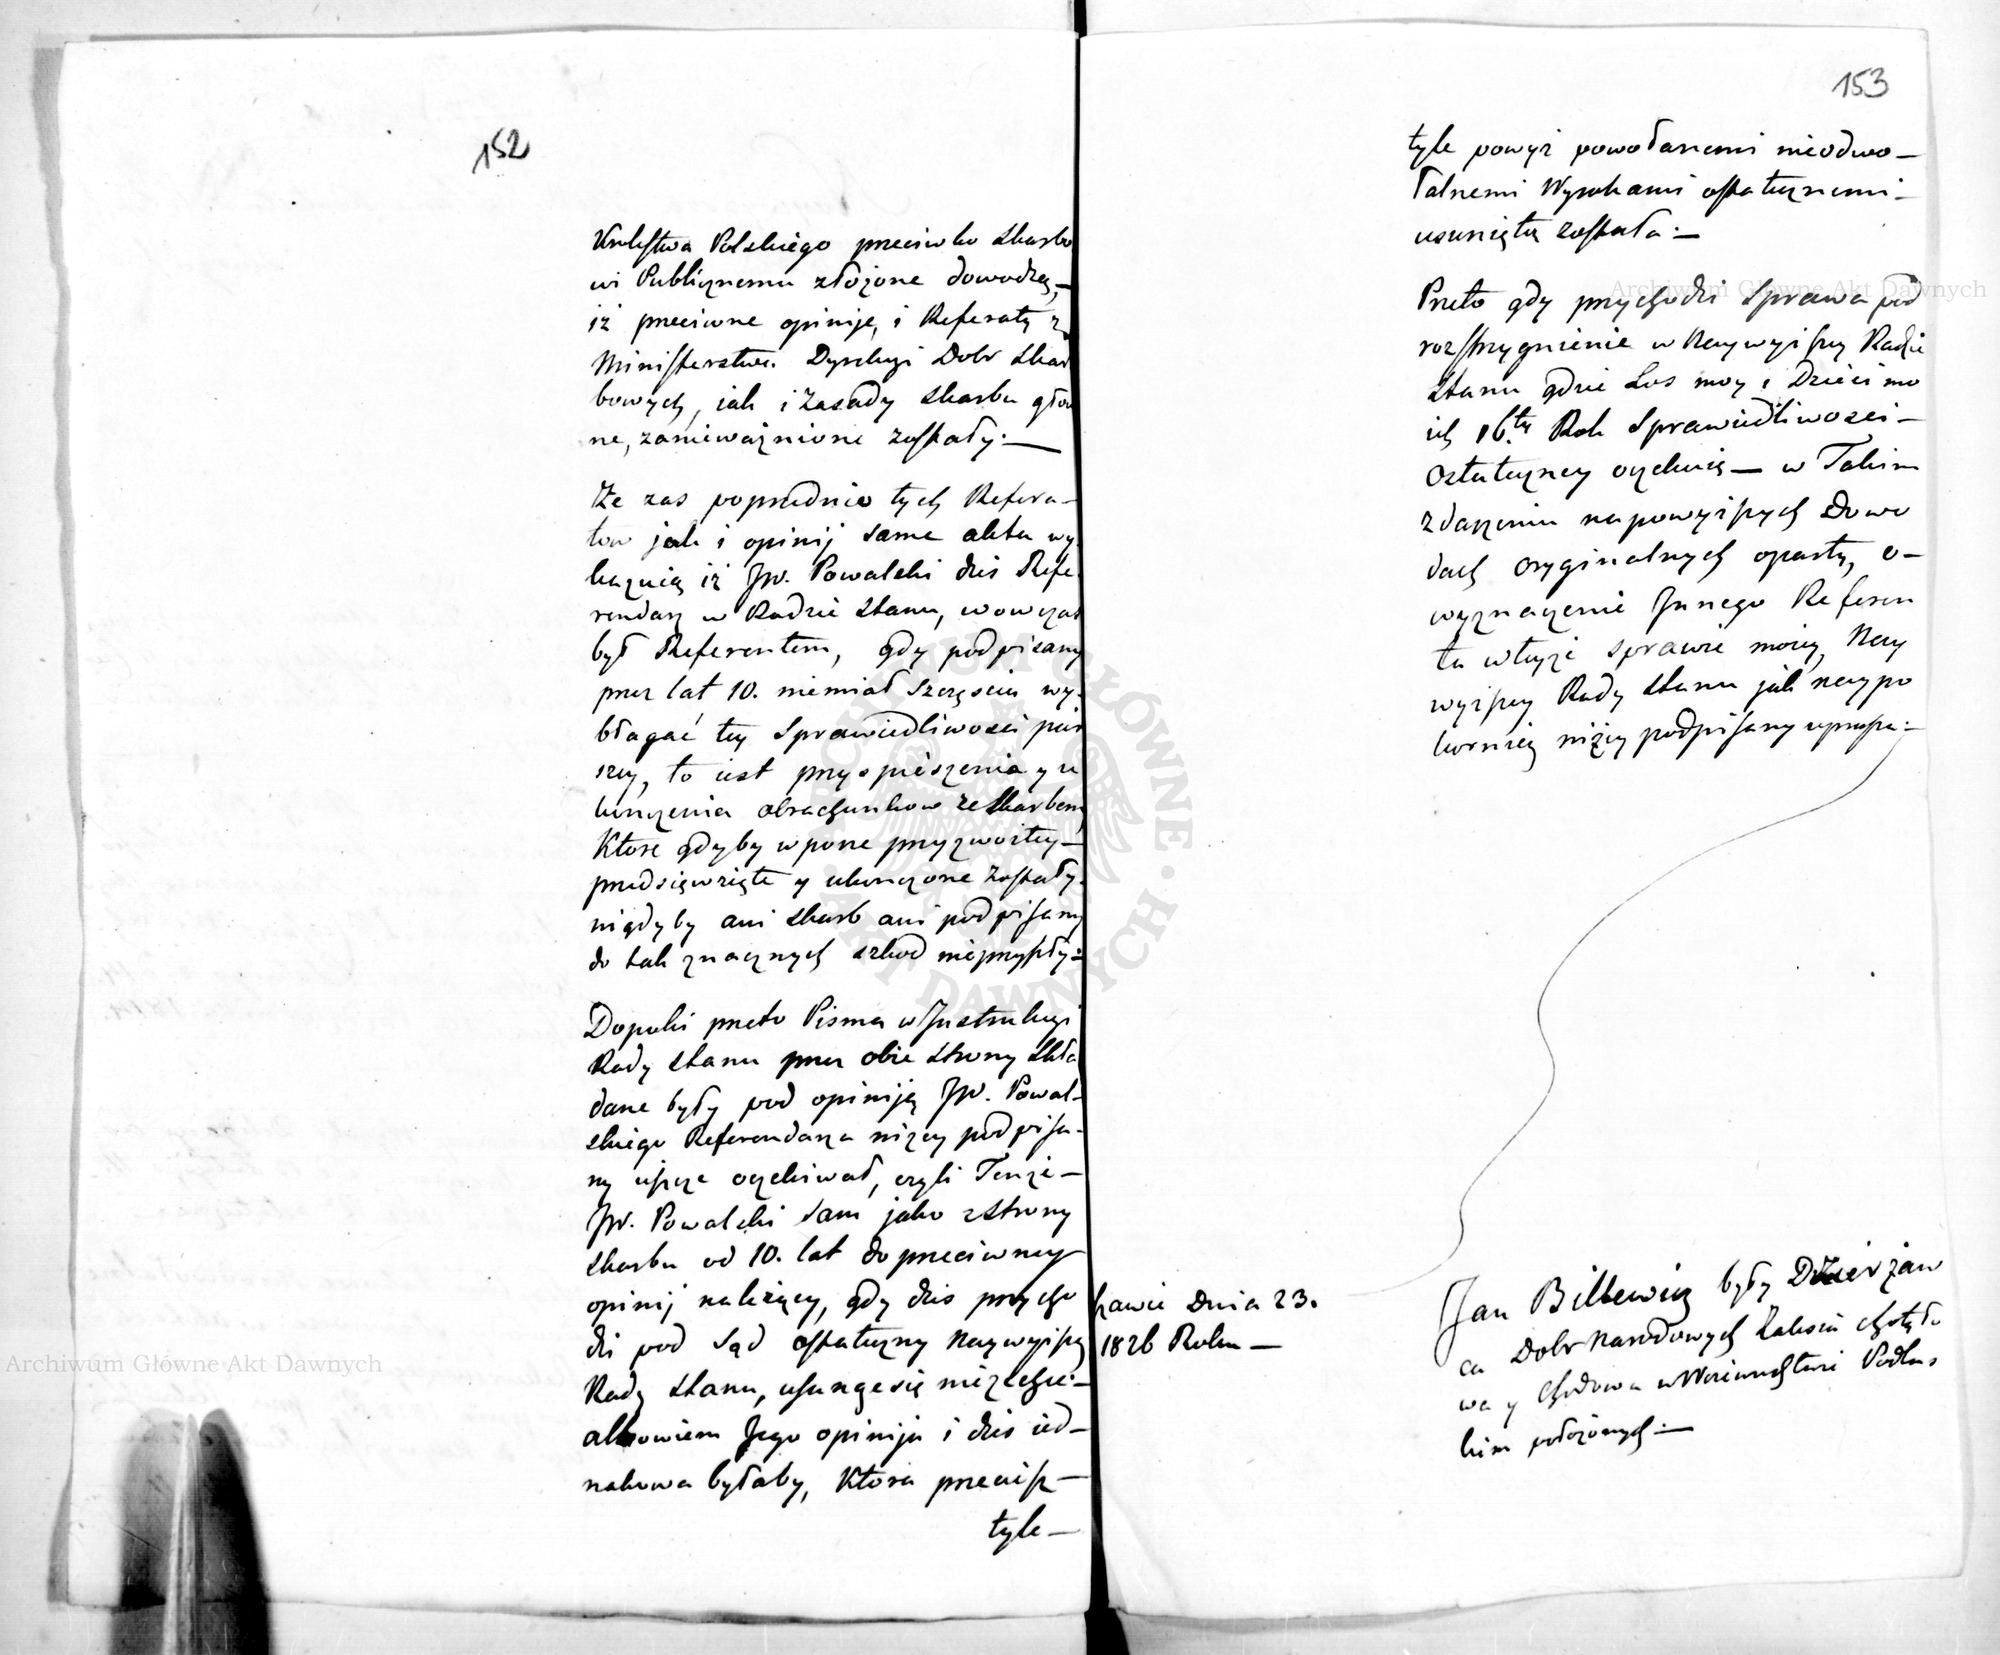 152
Krolestwa Polskiego przeciwko Skarbo
wi Publicznemu złożone dowodzą,—
iż przeciwne opinije, i Referaty z
Ministerstwa. Dyrekcyi Dobr Skar
bowych, iak i Zasady Skarbu głow
ne, zanieważnione zostały:—
Że zas poprzednio tych Refera—
tow jak i opinij same akta wy-
kazuią iż JW. Powalski dzis Refe-
rendarz w Radzie Stanu, wowczas
był Referentem, gdy podpisany
przez lat 10. niemiał szczęscia wy-
błagać tey Sprawiedliwosci pier
szey, to iest przyspieszenia y u
konczenia obrachunkow ze Skarbem,
Ktore gdyby w porze przyzwoitey—
przedsięwzięte y ukonczone zostały.
nigdyby ani Skarb ani podpisany
do tak znacznych szkod nieprzyszły:—
Dopoki przeto Pisma w Instrukcyi
Rady Stanu przez obie Strony Skła
dane były pod opiniją JW. Powal-
skiego Referendarza niżey podpisa-
ny ieszcze oczekiwał, czyli Tenże—
JW. Powalski sam jako z Strony
Skarbu od 10. lat do przeciwney
opinij należący, gdy dzis przycho
dzi pod Sąd ostateczny Naywyższey
Rady Stanu, usunąć się niezechce:—
albowiem Jego opinija i dzis ied—
nakowa byłaby, Ktora przeciesz—
tyle—
153
tyle powyż powołanemi nieodwo—
łalnemi Wyrokami ostatecznemi—
usunięta została:—
Przeto gdy przychodzi Sprawa pod
rozstrzygnienie w Naywyższey Radzie
Stanu gdzie Los moy i Dzieci mo
ich 16.ty Rok Sprawiedliwosci—
Ostateczney oczekuie— w Takim
zdarzeniu na powyższych Dowo
dach oryginalnych oparty, o—
wyznaczenie Innego Referen
ta w teyże sprawie moiey, Nay
wyższey Rady Stanu jak naypo
korniey niżey podpisany uprasza:—
Jan Billewicz były Dzierżaw
ca Dobr Narodowych Zalesia Chotyło
wa y Chodowa w Woiewodztwie Podlas
kim położonych:—
szawie Dnia 23.
1826 Roku—
Archiwum Główne Akt Dawnych
Archiwum Główne Akt Dawnych